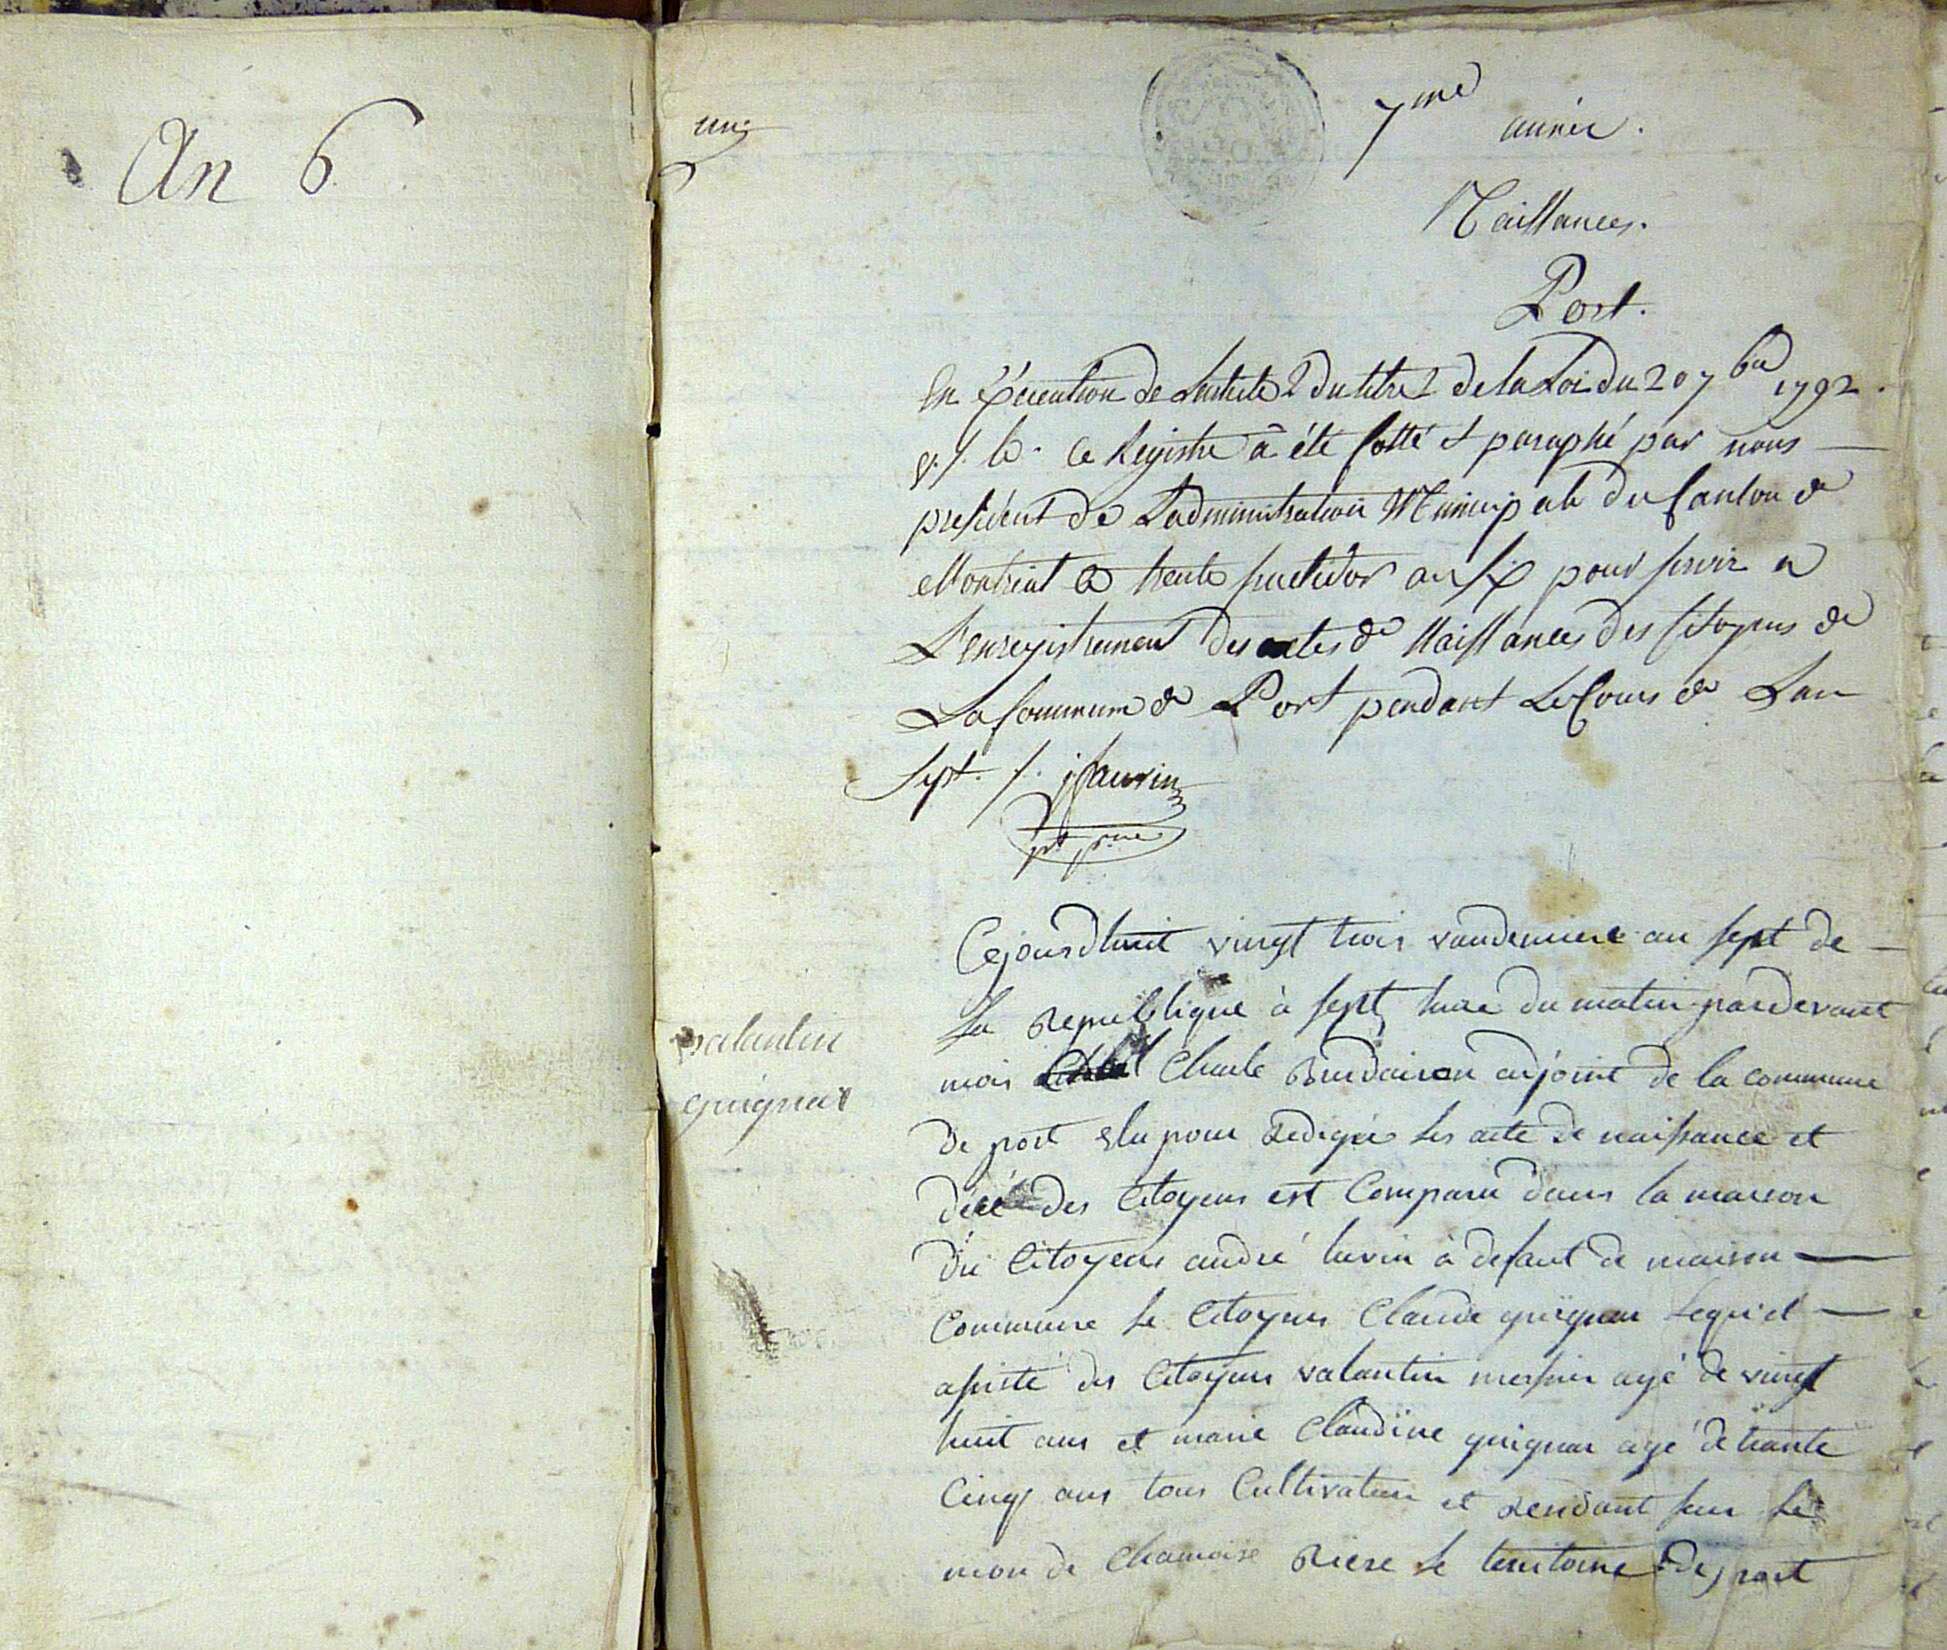 An 6
un
7me année.
Naissances.
Port.
En Exécution de Larticle 2 du titre 2 de la Loi du 20 7bre 1792.
v. s. le Registre a été Cotté et paraphé par nous
president de Ladministration Municipale du Canton de
Montreal le trente fructidor an six pour servir a
L'enregistrement des actes de Naissances des Citoyens de
La Commune de Port pendant Le Cours de Lan
sept. /. jsauvin
pt
Cejourdhuit vingt trois vandemiere an sept de
La Republique à sept hure du matin pardevant
valantin
guignar
moi Charle Burdairon adjoint de la commune
de port elu pour Redigée les acte de naissance et
décé des Citoyens est Comparu dans la maison
du Citoyens andré lurin à defaut de maison
Commune le Citoyens Claude guignar lequel
asisté des Citoyens valantin agé de vingt
huit ans et marie Claudine guignar agé de trante
Cinq ans tous Cultivateur et Rendant sur le
mon de Chamoise Riere le territoire de port